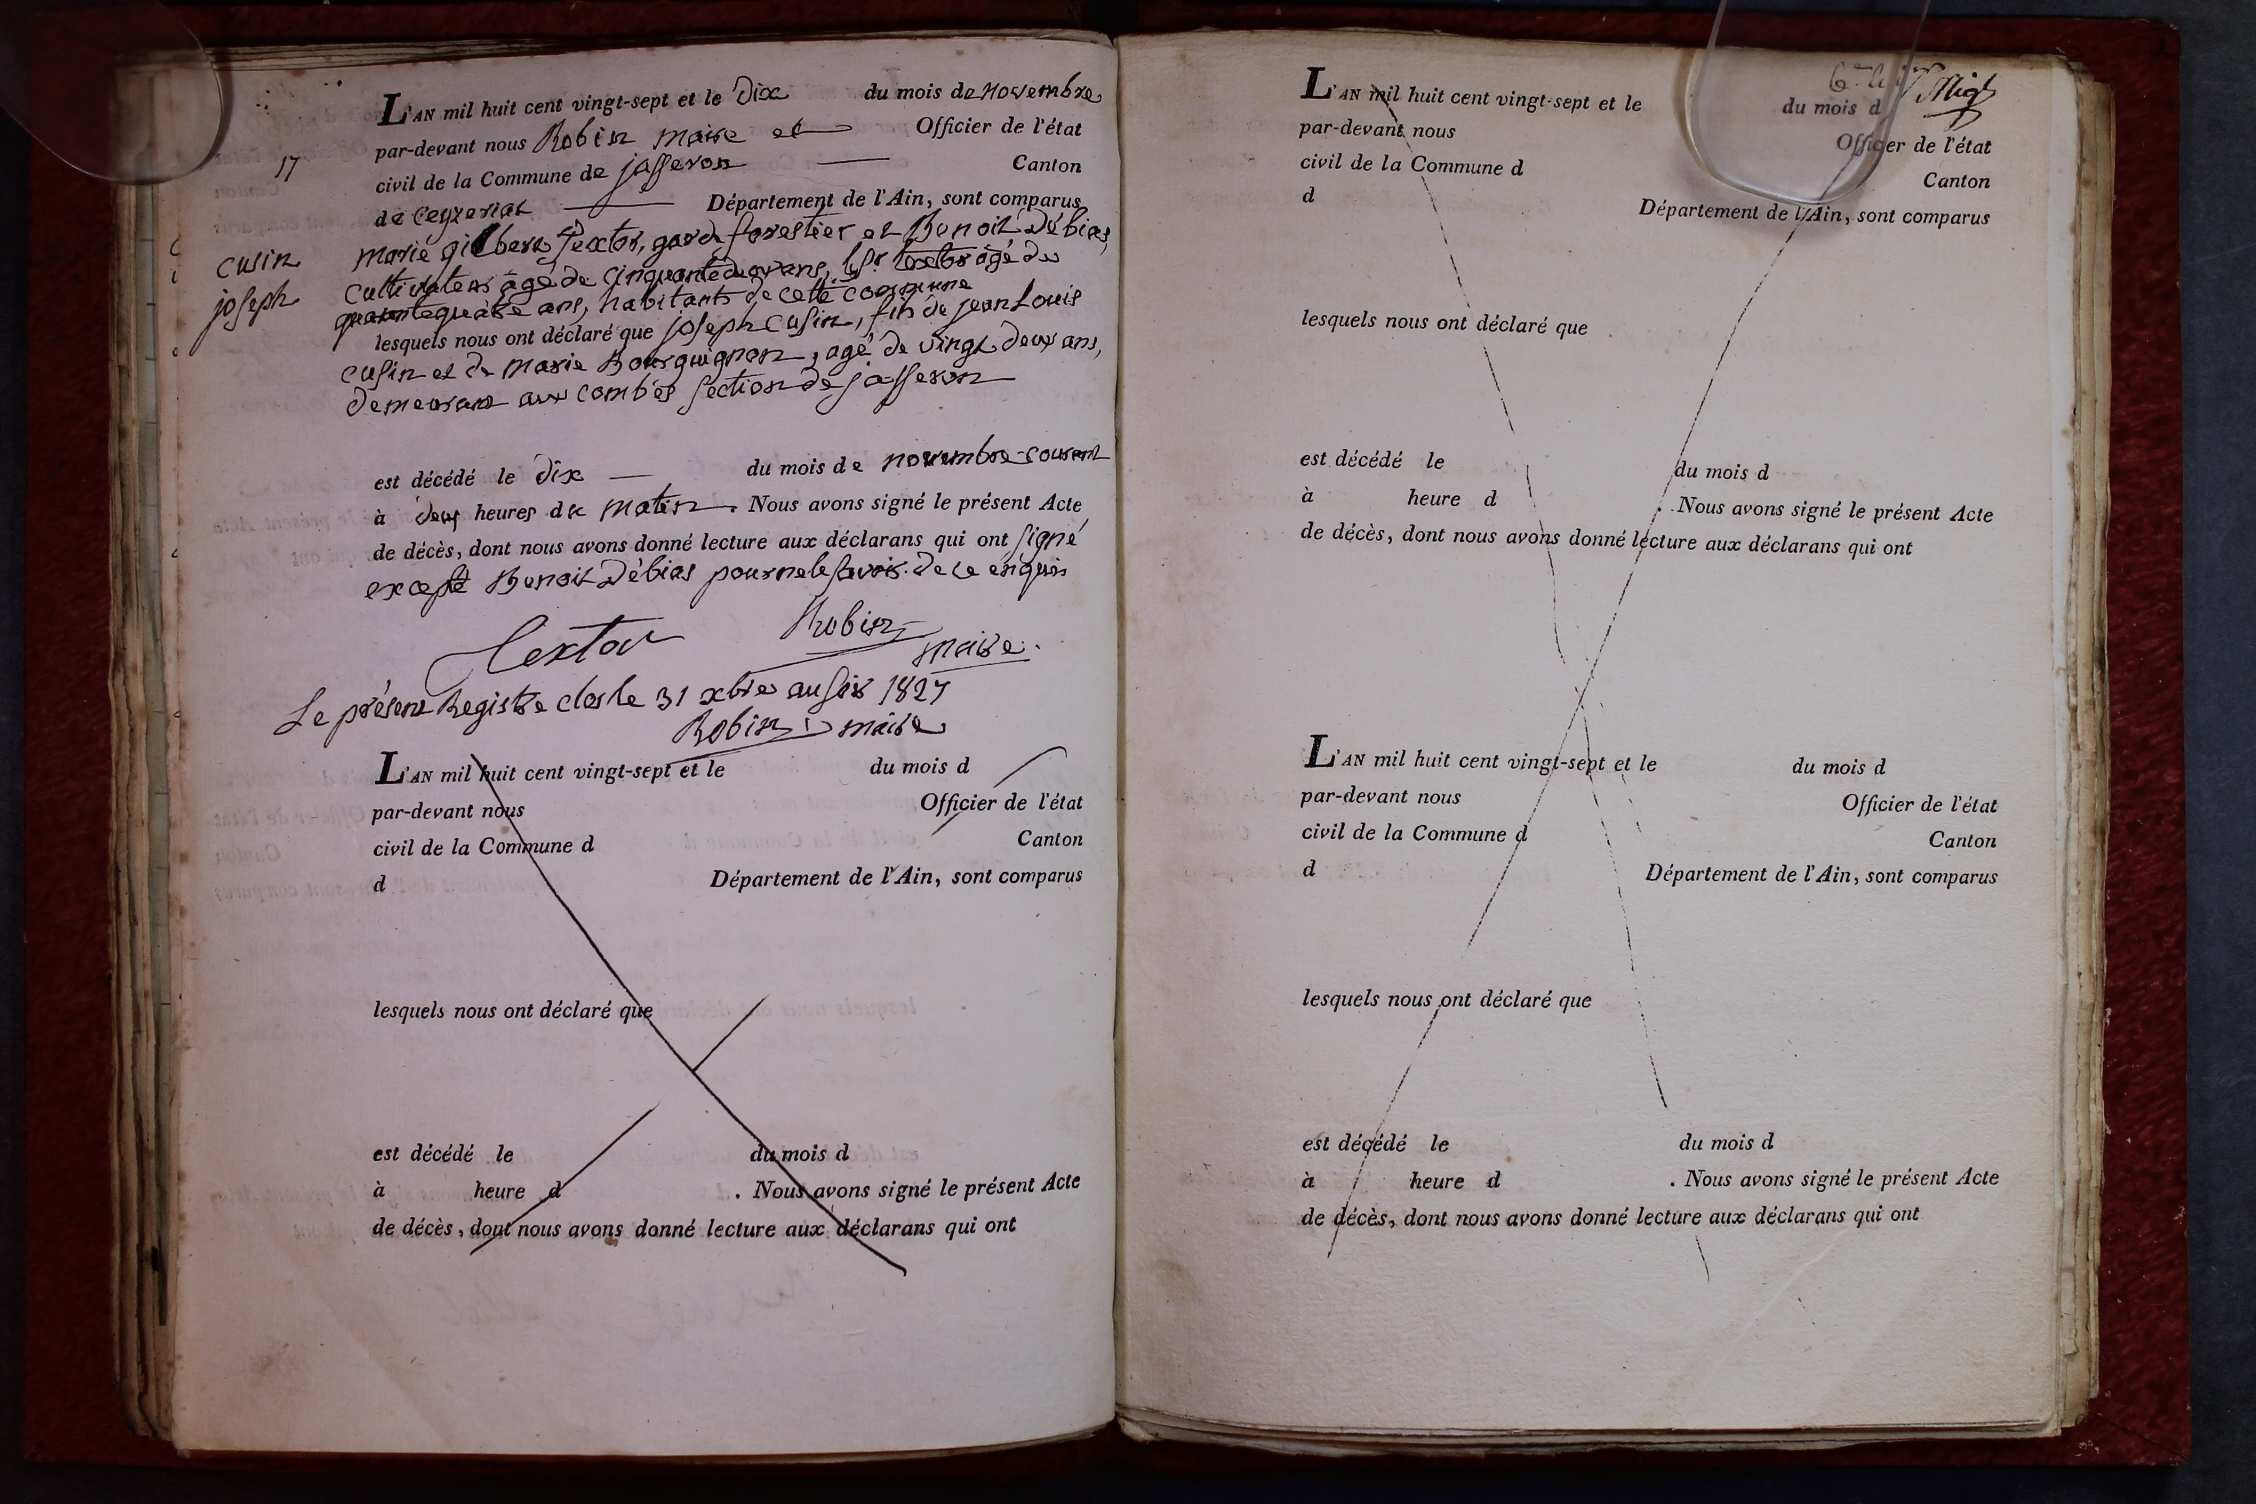 L'AN mil huit cent vingt-sept et le Dix du mois de Novembre
par-devant nous Robin Maire et Officier de l'état
17
civil de la Commune de jasseron Canton
de Ceyzeriat Département de l'Ain, sont comparus
cusin
joseph
Marie gilbert Textor, garde forestier et Benoit Débias,
cultivateur âgé de cinquante deux ans, le Sr. textor âgé de
quarante quatre ans, habitants de cette commune
lesquels nous ont déclaré que joseph Cusin, fils de jean Louis
cusin et de Marie Bourguignon, agé de vingt deux ans,
demeurant aux combes section de jasseron
est décédé le dix du mois de novembre courant
à deux heures du matin. Nous avons signé le présent Acte
de décès, dont nous avons donné lecture aux déclarans qui ont signé
excepté Benoit Débias pour ne le savoir. de ce enquis
Textor Robin
maire.
Le présent Registre clos le 31 xbre au soir 1827
Robin maire
L'AN mil huit cent vingt-sept et le du mois d
par-devant nous Officier de l'état
civil de la Commune d Canton
d Département de l'Ain, sont comparus
lesquels nous ont déclaré que
est décédé le du mois d
à heure d . Nous avons signé le présent Acte
de décès, dont nous avons donné lecture aux déclarans qui ont
L'AN mil huit cent vingt-sept et le du mois d
par-devant nous Officier de l'état
civil de la Commune d Canton
d Département de l'Ain, sont comparus
lesquels nous ont déclaré que
est décédé le du mois d
à heure d . Nous avons signé le présent Acte
de décès, dont nous avons donné lecture aux déclarans qui ont
L'AN mil huit cent vingt-sept et le du mois d
par-devant nous Officier de l'état
civil de la Commune d Canton
d Département de l'Ain, sont comparus
lesquels nous ont déclaré que
est décédé le du mois d
à heure d . Nous avons signé le présent Acte
de décès, dont nous avons donné lecture aux déclarans qui ont